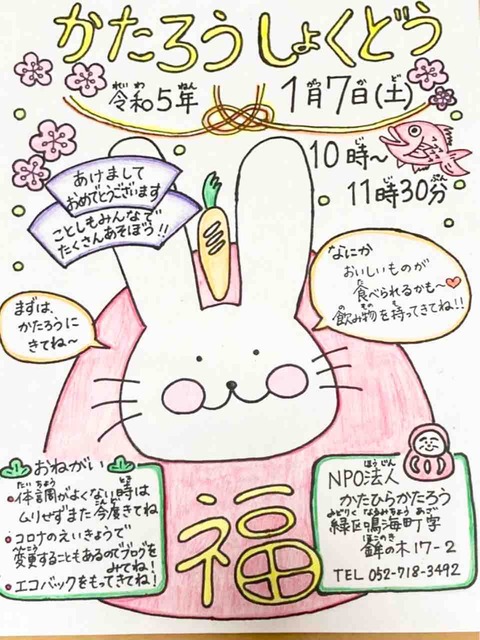 かたろうしょくどう
令和5年 1月7日(土)
10時～
11時30分
あけまして
おめでとうございます
ことしもみんなで
たくさんあそぼう!!
なにか
おいしいものが
食べられるかも～
飲み物を持ってきてね!!
まずは、
かたろうに
きてね～
おねがい
・体調がよくない時は
ムリせずまた今度きてね
・コロナのえいきょうで
変更することもあるのでブログを
みてね!
・エコバックをもってきてね!
福
NPO法人
かたひらかたろう
緑区鳴海町字
鉾の木17-2
TEL 052-718-3492